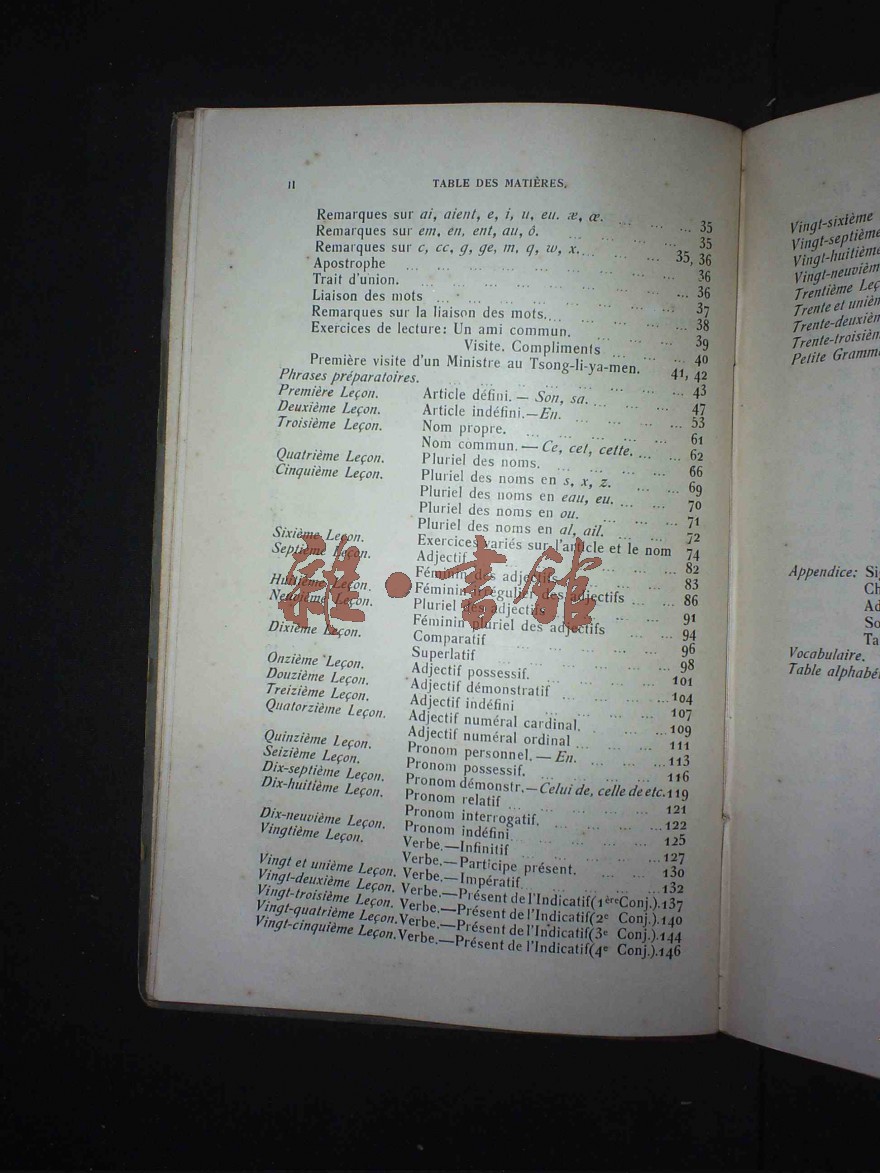 II TABLE DES MATIÈRES.
Remarques sur ai, aient, e, i, u, eu. æ, œ. ... ... ... 35
Remarques sur em, en, ent, au, ô. ... ... ... 35
Remarques sur c, cc, g, ge, m, q, w, x. ... ... ... 35, 36
Apostrophe ... ... ... 36
Trait d'union. ... ... ... 36
Liaison des mots ... ... ... 37
Remarques sur la liaison des mots. ... ... 38
Exercices de lecture: Un ami commun. ... ... 39
Visite. Compliments ... ... 40
Première visite d'un Ministre au Tsong-li-ya-men. 41, 42
Phrases préparatoires. ... ... ... 43
Première Leçon. Article défini. — Son, sa. ... ... 47
Deuxième Leçon. Article indéfini.—En. ... ... 53
Troisième Leçon. Nom propre. ... ... 61
Nom commun. — Ce, cet, cette. ... ... 62
Quatrième Leçon. Pluriel des noms. ... ... 66
Cinquième Leçon. Pluriel des noms en s, x, z. ... ... 69
Pluriel des noms en eau, eu. ... ... 70
Pluriel des noms en ou. ... ... 71
Pluriel des noms en al, ail. ... ... 72
Sixième Leçon. Exercices variés sur l'article et le nom 74
Septième Leçon. Adjectif ... ... 82
Féminin des adjectifs ... ... 83
Huitième Leçon. Féminin irrégulier des adjectifs ... ... 86
Neuvième Leçon. Pluriel des adjectifs ... ... 91
Féminin pluriel des adjectifs ... 94
Dixième Leçon. Comparatif ... ... 96
Superlatif ... ... 98
Onzième Leçon. Adjectif possessif. ... ... 101
Douzième Leçon. Adjectif démonstratif ... ... 104
Treizième Leçon. Adjectif indéfini ... ... 107
Quatorzième Leçon. Adjectif numéral cardinal. ... 109
Adjectif numéral ordinal ... ... 111
Quinzième Leçon. Pronom personnel. — En. ... ... 113
Seizième Leçon. Pronom possessif. ... ... 116
Dix-septième Leçon. Pronom démonstr.—Celui de, celle de etc. 119
Dix-huitième Leçon. Pronom relatif ... ... 121
Pronom interrogatif. ... ... 122
Dix-neuvième Leçon. Pronom indéfini ... ... 125
Vingtième Leçon. Verbe.—Infinitif ... ... 127
Verbe.—Participe présent. ... 130
Vingt et unième Leçon. Verbe.—Impératif ... ... 132
Vingt-deuxième Leçon. Verbe.—Présent de l'Indicatif(1ère Conj.).137
Vingt-troisième Leçon. Verbe.—Présent de l'Indicatif(2e Conj.).140
Vingt-quatrième Leçon. Verbe.—Présent de l'Indicatif(3e Conj.).144
Vingt-cinquième Leçon. Verbe.—Présent de l'Indicatif(4e Conj.).146
雜·書館
Vingt-sixième
Vingt-septième
Vingt-huitième
Vingt-neuvièm
Trentième Leç
Trente et unièm
Trente-deuxièm
Trente-troisièm
Petite Gramma
Appendice: Si
Ch
Ad
So
Ta
Vocabulaire.
Table alphabé